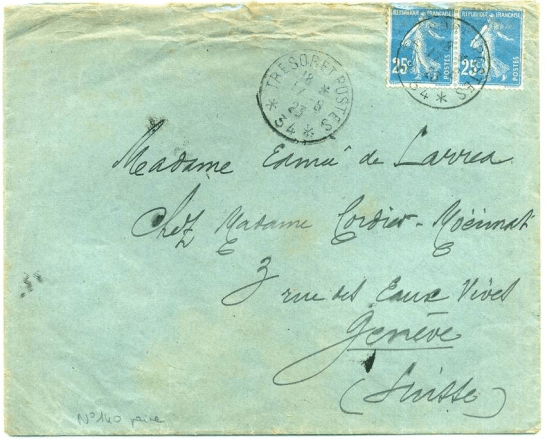 REPUBLIQUE FRANCAISE
25c POSTES
REPUBLIQUE FRANÇAISE
25c POSTES
* TRESOR ET POSTES *
18 *
17 - 8
23
34
Madame Edmée de Larrea
Chez Madame Cordier-
3 rue des Eaux Vives
Genève
(Suisse)
N° 140 paire